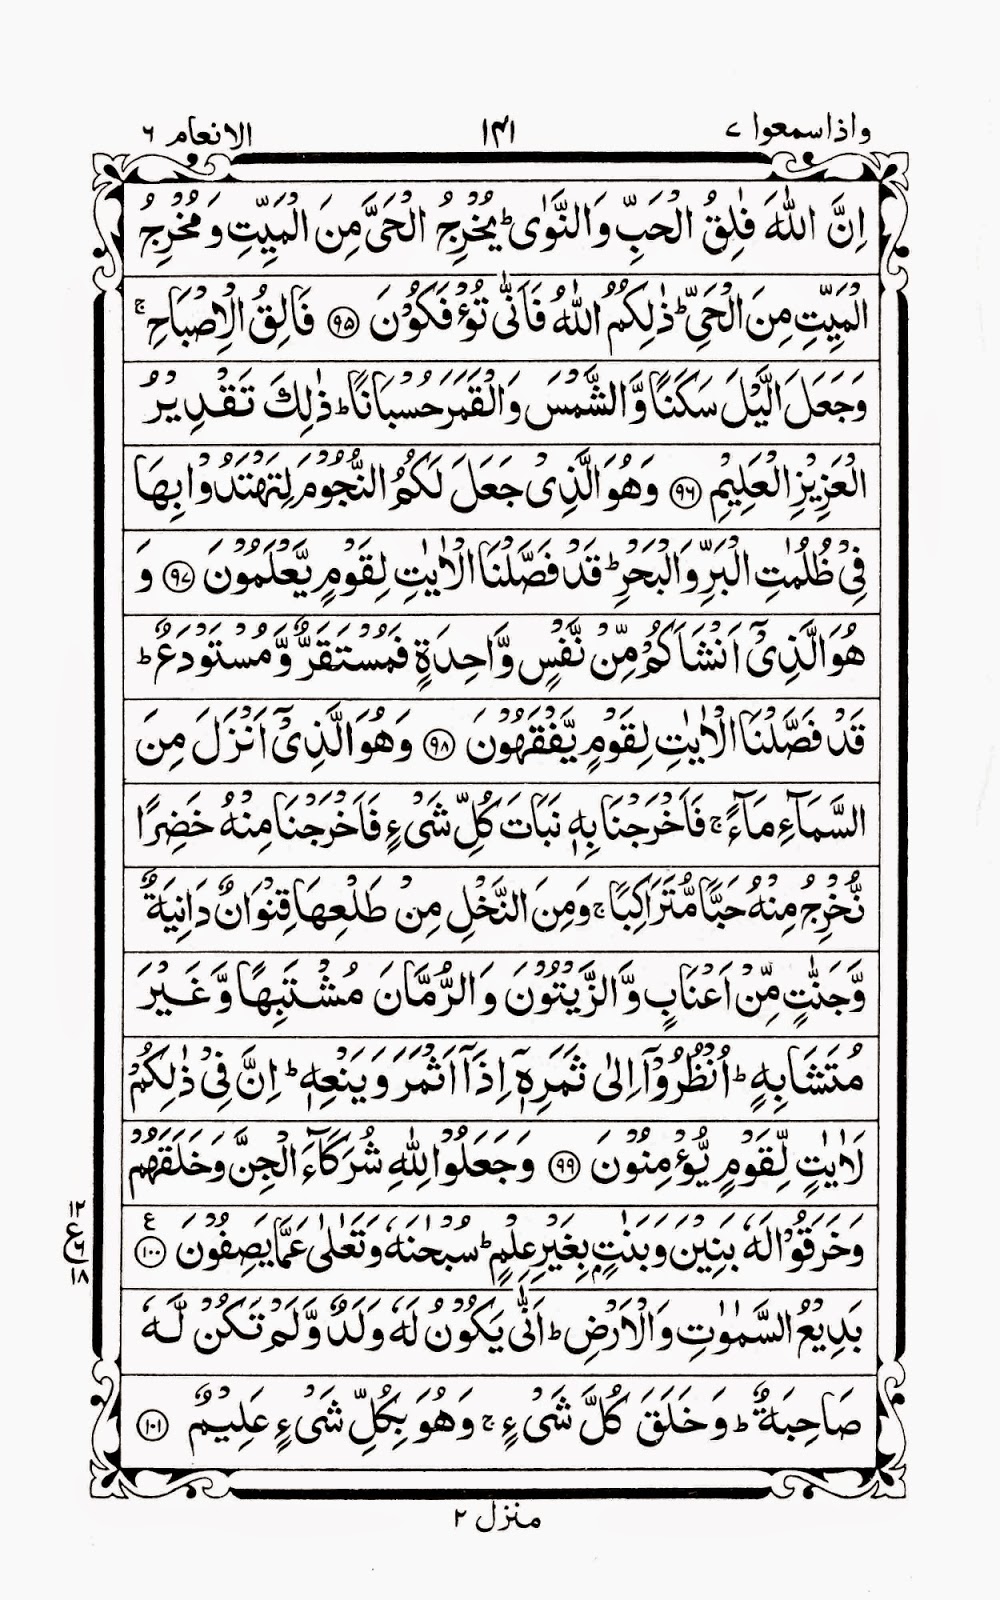 واذاسمعوا ٧
١٤١
الانعام ٦
اِنَّ اللّٰهَ فٰلِقُ الْحَبِّ وَالنَّوٰى ؕ يُخْرِجُ الْحَىَّ مِنَ الْمَيِّتِ وَ مُخْرِجُ
الْمَيِّتِ مِنَ الْحَىِّ ؕ ذٰلِكُمُ اللّٰهُ فَاَنّٰى تُؤْفَكُوْنَ ﴿٩٥﴾ فَالِقُ الْاِصْبَاحِ ۚ
وَجَعَلَ الَّيْلَ سَكَنًا وَّالشَّمْسَ وَالْقَمَرَ حُسْبَانًا ؕ ذٰلِكَ تَقْدِيْرُ
الْعَزِيْزِ الْعَلِيْمِ ﴿٩٦﴾ وَهُوَ الَّذِىْ جَعَلَ لَكُمُ النُّجُوْمَ لِتَهْتَدُوْا بِهَا
فِىْ ظُلُمٰتِ الْبَرِّ وَالْبَحْرِ ؕ قَدْ فَصَّلْنَا الْاٰيٰتِ لِقَوْمٍ يَّعْلَمُوْنَ ﴿٩٧﴾ وَ
هُوَ الَّذِىْۤ اَنْشَاَكُمْ مِّنْ نَّفْسٍ وَّاحِدَةٍ فَمُسْتَقَرٌّ وَّمُسْتَوْدَعٌ ؕ
قَدْ فَصَّلْنَا الْاٰيٰتِ لِقَوْمٍ يَّفْقَهُوْنَ ﴿٩٨﴾ وَهُوَ الَّذِىْۤ اَنْزَلَ مِنَ
السَّمَآءِ مَآءً ۚ فَاَخْرَجْنَا بِهٖ نَبَاتَ كُلِّ شَىْءٍ فَاَخْرَجْنَا مِنْهُ خَضِرًا
نُّخْرِجُ مِنْهُ حَبًّا مُّتَرَاكِبًا ۚ وَمِنَ النَّخْلِ مِنْ طَلْعِهَا قِنْوَانٌ دَانِيَةٌ
وَّجَنّٰتٍ مِّنْ اَعْنَابٍ وَّالزَّيْتُوْنَ وَالرُّمَّانَ مُشْتَبِهًا وَّغَيْرَ
مُتَشَابِهٍ ؕ اُنْظُرُوْۤا اِلٰى ثَمَرِهٖۤ اِذَاۤ اَثْمَرَ وَيَنْعِهٖ ؕ اِنَّ فِىْ ذٰلِكُمْ
لَاٰيٰتٍ لِّقَوْمٍ يُّؤْمِنُوْنَ ﴿٩٩﴾ وَجَعَلُوْا لِلّٰهِ شُرَكَآءَ الْجِنَّ وَخَلَقَهُمْ
وَخَرَقُوْا لَهٗ بَنِيْنَ وَبَنٰتٍۭ بِغَيْرِ عِلْمٍ ؕ سُبْحٰنَهٗ وَتَعٰلٰى عَمَّا يَصِفُوْنَ ﴿١٠٠﴾ ع
١٢
ع ٦
١٨
بَدِيْعُ السَّمٰوٰتِ وَالْاَرْضِ ؕ اَنّٰى يَكُوْنُ لَهٗ وَلَدٌ وَّلَمْ تَكُنْ لَّهٗ
صَاحِبَةٌ ؕ وَخَلَقَ كُلَّ شَىْءٍ ۚ وَهُوَ بِكُلِّ شَىْءٍ عَلِيْمٌ ﴿١٠١﴾
منزل ٢